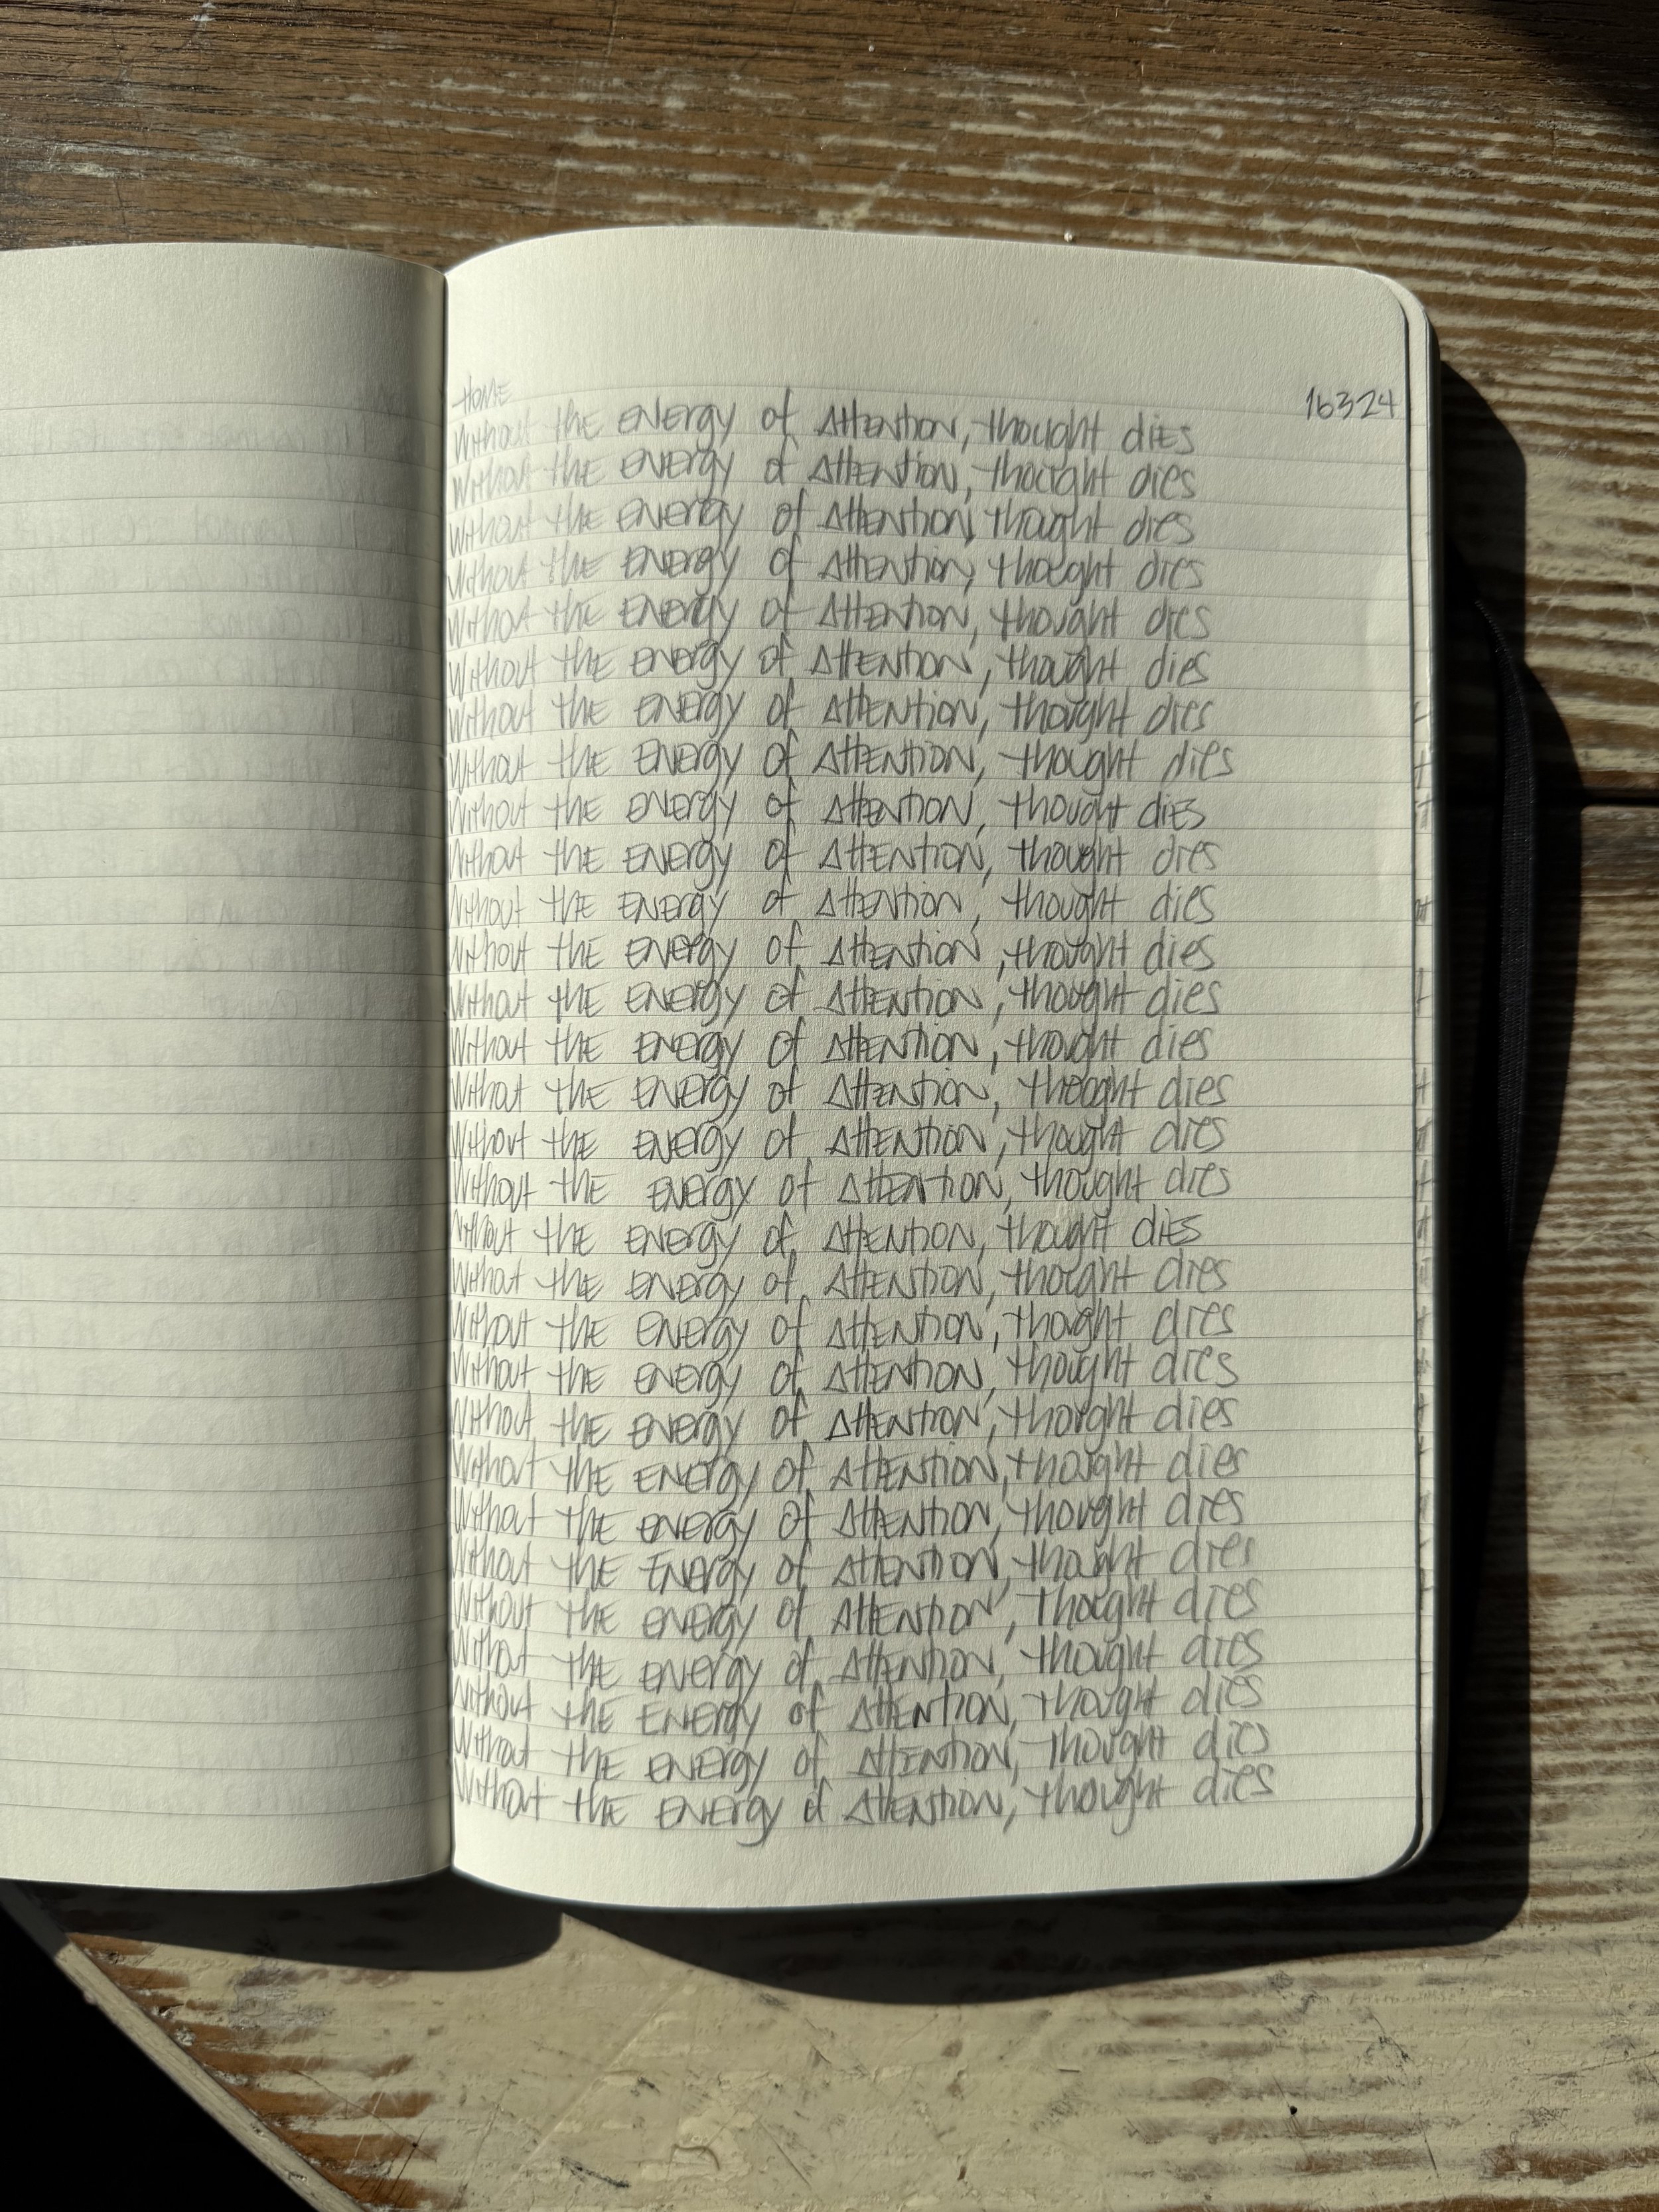 HOME
16324
Without the energy of Attention, thought dies
Without the energy of Attention, thought dies
Without the energy of Attention, thought dies
Without the energy of Attention, thought dies
Without the energy of Attention, thought dies
Without the energy of Attention, thought dies
Without the energy of Attention, thought dies
Without the energy of Attention, thought dies
Without the energy of Attention, thought dies
Without the energy of Attention, thought dies
Without the energy of Attention, thought dies
Without the energy of Attention, thought dies
Without the energy of Attention, thought dies
Without the energy of Attention, thought dies
Without the energy of Attention, thought dies
Without the energy of Attention, thought dies
Without the energy of Attention, thought dies
Without the energy of Attention, thought dies
Without the energy of Attention, thought dies
Without the energy of Attention, thought dies
Without the energy of Attention, thought dies
Without the energy of Attention, thought dies
Without the energy of Attention, thought dies
Without the energy of Attention, thought dies
Without the Energy of Attention, thought dies
Without the energy of Attention, thought dies
Without the energy of Attention, thought dies
Without the energy of Attention, thought dies
Without the energy of Attention, thought dies
Without the energy of Attention, thought dies